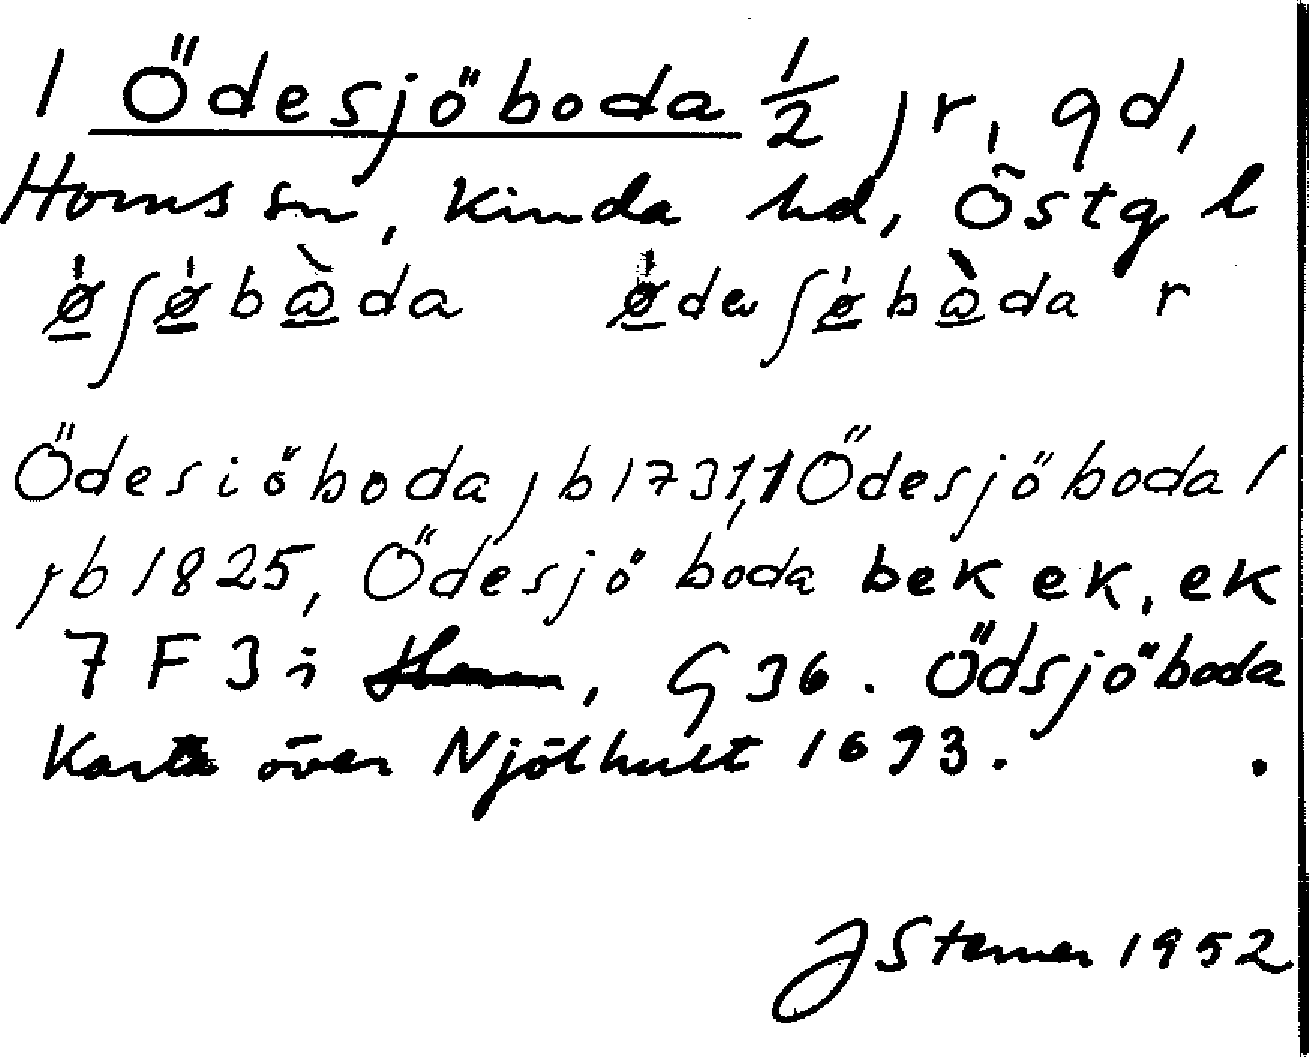 1 Ödesjöboda 1/2 jr, gd,
Horns sn, Kinda hd, Östg l
ǿʃǿbὼda ǿdeʃǿbὼda r
Ödesiöboda jb 1731, 1 Ödesjöboda 1
jb 1825, Ödesjöboda bek ek, ek
7 F 3 i G 36. Ödsjöboda
Karta över Njölhult 1693.
J Sterner 1952